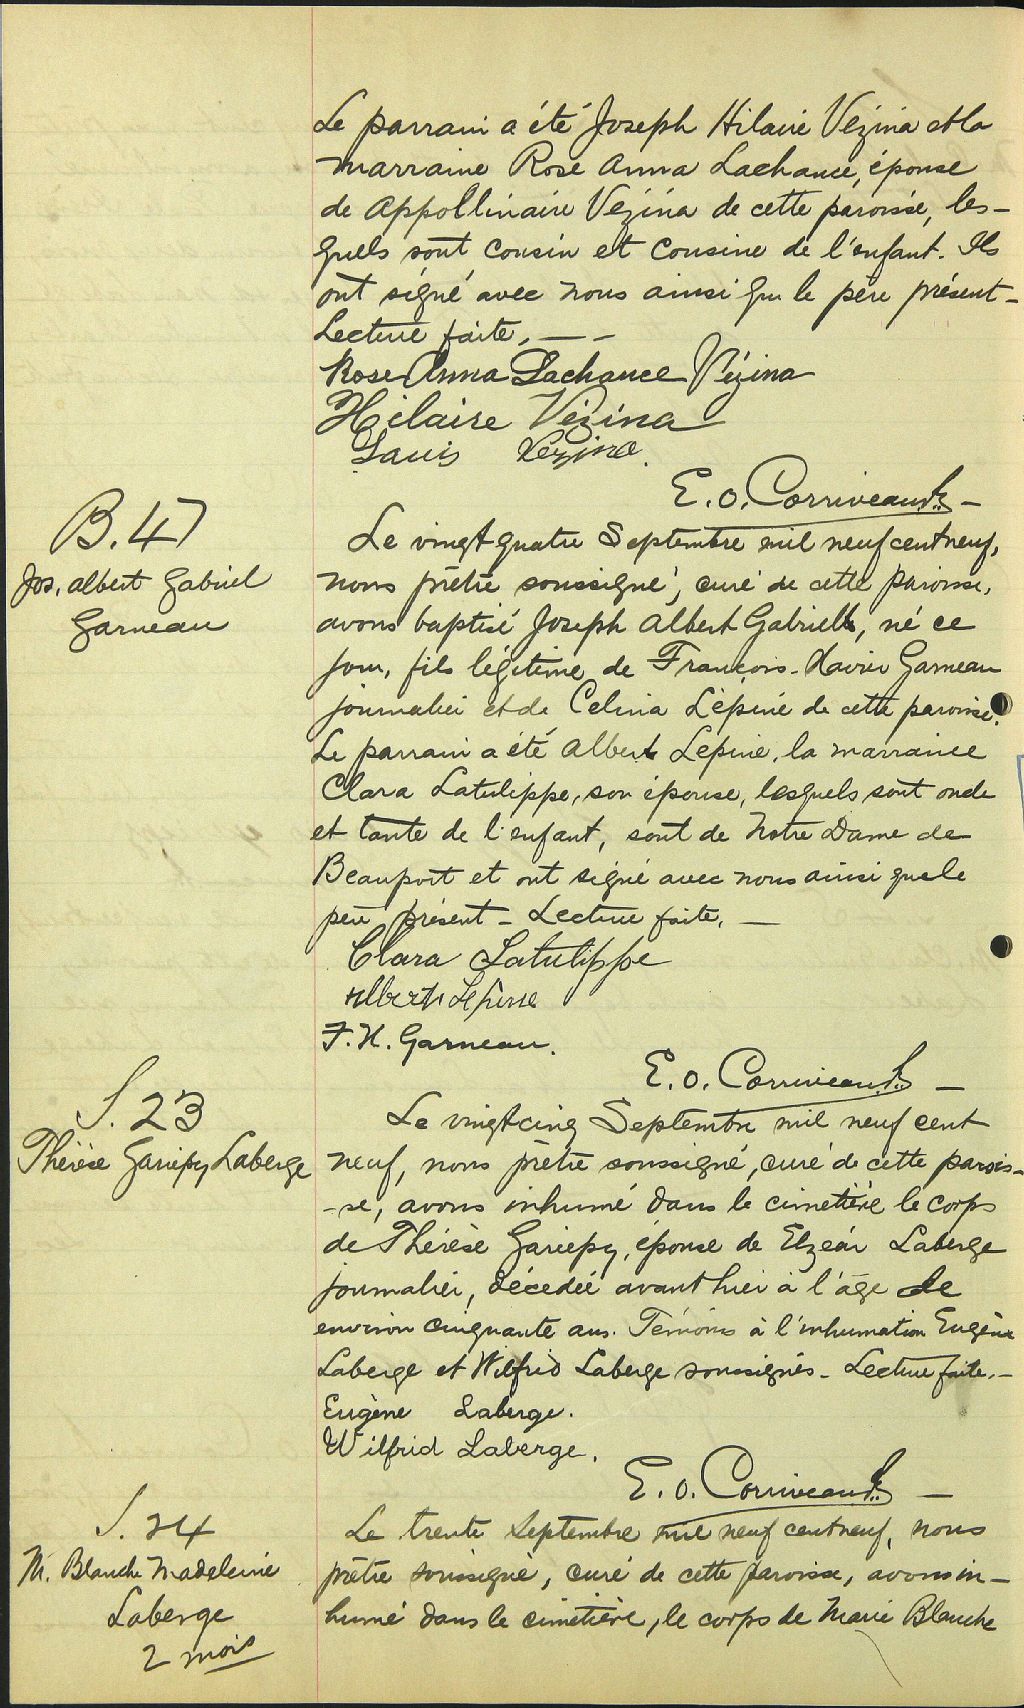 Le parrain a été Joseph Hilaire Vézina et la
marraine Rose Anna Lachance, épouse
de Appollinaire Vézina de cette paroisse, les-
quels sont cousin et cousine de l'enfant. Ils
ont signé avec nous ainsi que le père présent -
Lecture faite, — —
Rose Anna Lachance Vézina
Hilaire Vézina
Louis Vézina.
E. O. Corriveau Ptre -
B. 47
Jos. Albert Gabriel
Garneau
Le vingt quatre Septembre mil neuf cent neuf,
nous prêtre soussigné, curé de cette paroisse,
avons baptisé Joseph Albert Gabriel, né ce
jour, fils légitime de François-Xavier Garneau
journalier et de Celina Lépine de cette paroisse.
Le parrain a été Albert Lépine, la marraine
Clara Latulippe, son épouse, lesquels sont oncle
et tante de l'enfant, sont de Notre Dame de
Beauport et ont signé avec nous ainsi que le
père présent - Lecture faite, —
Clara Latulippe
Albert Lépine
F. X. Garneau.
E. O. Corriveau Ptre —
S. 23
Thérèse Gariépy Laberge
Le vingt cinq Septembre mil neuf cent
neuf, nous prêtre soussigné, curé de cette parois-
-se, avons inhumé dans le cimetière le corps
de Thérèse Gariépy, épouse de Elzéar Laberge
journalier, décédée avant hier à l'âge de
environ cinquante ans. Témoins à l'inhumation Eugène
Laberge et Wilfrid Laberge soussignés - Lecture faite, -
Eugène Laberge.
Wilfrid Laberge.
E. O. Corriveau Ptre —
S. 24
M. Blanche Madeleine
Laberge
2 mois
Le trente Septembre mil neuf cent neuf, nous
prêtre soussigné, curé de cette paroisse, avons in-
humé dans le cimetière, le corps de Marie Blanche